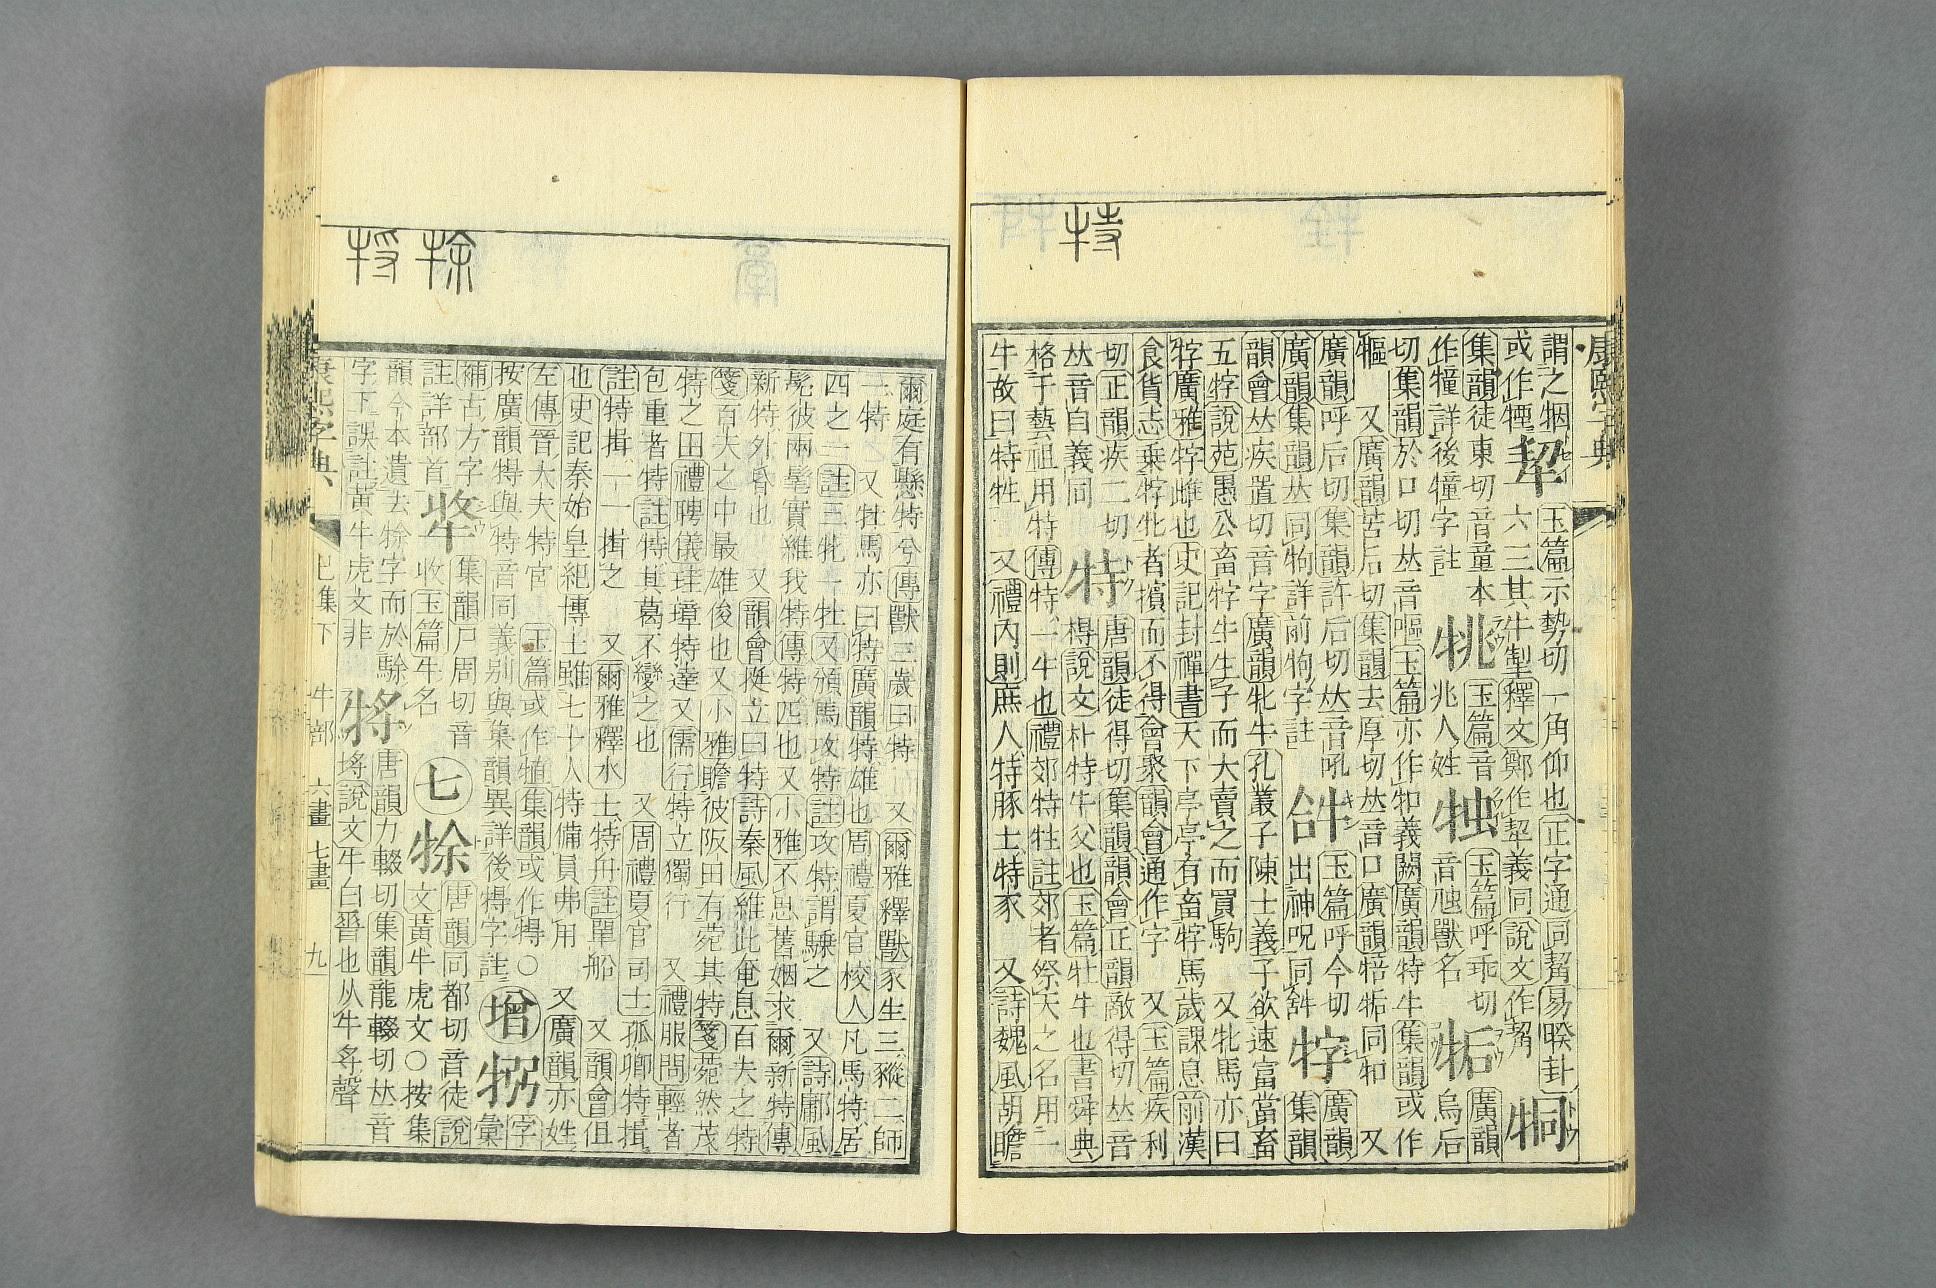 特
康熙字典
謂之牰 玉篇示勢切一角仰也正字通同觢易睽卦
或作㹣 挈 六三其牛掣釋文鄭作挈義同說文作觢 㸗
集韻徒東切音童本 玉篇音 玉篇呼乖切 廣韻
作犝詳後犝字註 㹿 兆人姓 音虺獸名 㸸 烏后
切集韻於口切𠀤音嘔玉篇亦作㸸義闕廣韻特牛集韻或作
㸸 又廣韻苦后切集韻去厚切𠀤音口廣韻㸸同㸸 又
廣韻呼后切集韻許后切𠀤音吼 玉篇呼今切 廣韻
廣韻集韻𠀤同物詳前物字註 出神呪同 牸 集韻
韻會𠀤疾置切音字廣韻牝牛孔叢子陳士義子欲速富當畜
五牸說苑愚公畜牸牛生子而大賣之而買駒 又牝馬亦曰
牸廣雅牸雌也史記封禪書天下亭亭有畜牸馬歲課息前漢
食貨志乘牸牝者擯而不得會聚韻會通作字 又玉篇疾利
切正韻疾二切 特 唐韻徒得切集韻韻會正韻敵得切𠀤音
𠀤音自義同 㝵說文朴特牛父也玉篇牡牛也書舜典
格于藝祖用特傳特一牛也禮郊特牲註郊者祭天之名用一
牛故曰特牲 又禮內則庶人特豚士特豕 又詩魏風胡瞻
捈 捋
爾庭有懸特兮傳獸三歲曰特 又爾雅釋獸豕生三豵二師
一特 又牡馬亦曰特廣韻特雄也周禮夏官校人凡馬特居
四之一註三牝一牡又頒馬攻特註攻特謂騬之 又詩鄘風
髧彼兩髦實維我特傳特匹也又小雅不思舊姻求爾新特傳
新特外昏也 又韻會挺立曰特詩秦風維此奄息百夫之特
箋百夫之中最雄俊也又小雅瞻彼阪田有菀其特箋菀然茂
特之田禮聘儀珪璋特達又儒行特立獨行 又禮服問輕者
包重者特註特其葛不變之也 又周禮夏官司士孤卿特揖
註特揖一一揖之 又爾雅釋水士特舟註單船 又韻會但
也史記秦始皇紀博士雖七十人特備員弗用 又廣韻亦姓
左傳晉大夫特宮 玉篇或作犆集韻或作㹥○
按廣韻㹥與特音同義別與集韻異詳後㹥字註 增 字彙
補古方字 集韻尸周切音 七 唐韻同都切音徒說
註詳部首 㸔 收玉篇牛名 㻌 文黃牛虎文○按集
韻今本遺去㻌字而於駼 唐韻力輟切集韻龍輟切𠀤音
字下誤註黃牛虎文非 埒說文牛白脊也从牛寽聲
康熙字典 巳集下 牛部 六畫 七畫 九